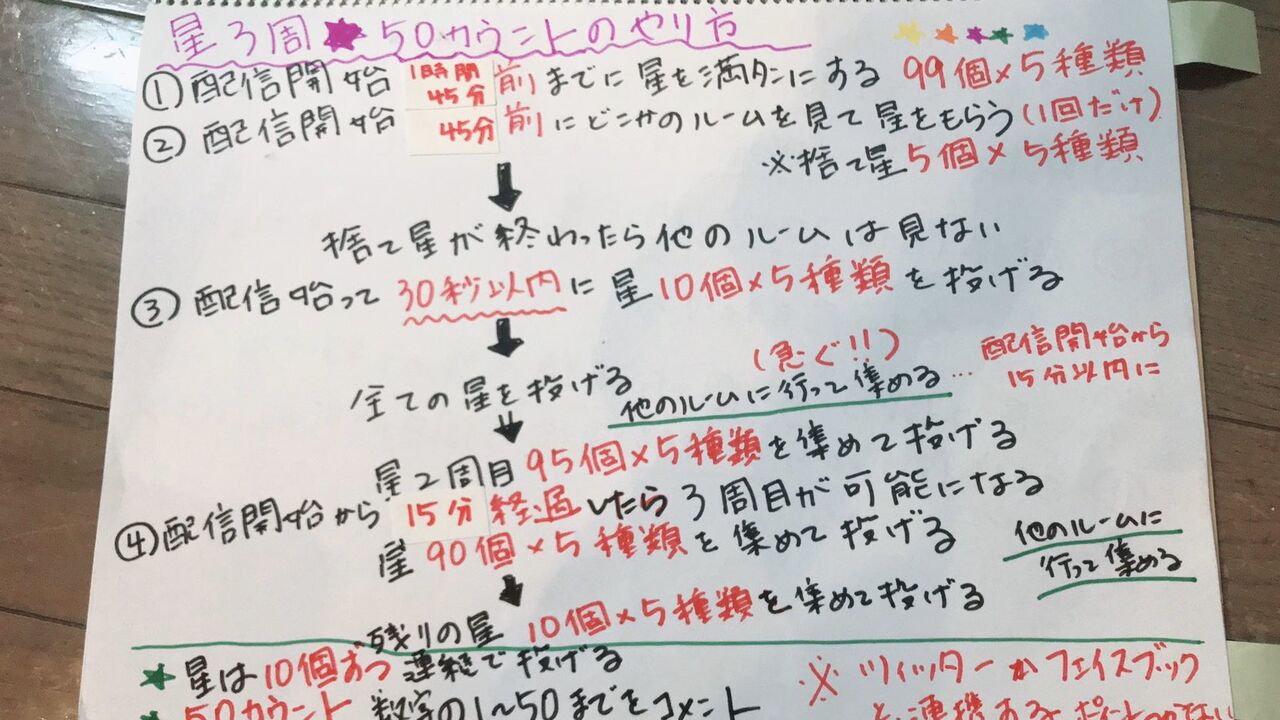 星3周★50カウントのやり方
①配信開始1時間45分前までに星を満タンにする 99個×5種類
②配信開始45分前にどこかのルームを見て星をもらう(1回だけ)
※捨て星5個×5種類
捨て星が終わったら他のルームは見ない
③配信始って30秒以内に星10個×5種類を投げる
(急ぐ!!)
全ての星を投げる 他のルームに行って集める…配信開始から15分以内に
星2周目95個×5種類を集めて投げる
④配信開始から15分経過したら3周目が可能になる
星90個×5種類を集めて投げる 他のルームに行って集める
残りの星10個×5種類を集めて投げる
★星は10個ずつ連続で投げる
50カウント 数字の1~50までをコメント
※ツイッターかフェイスブック
と連携する